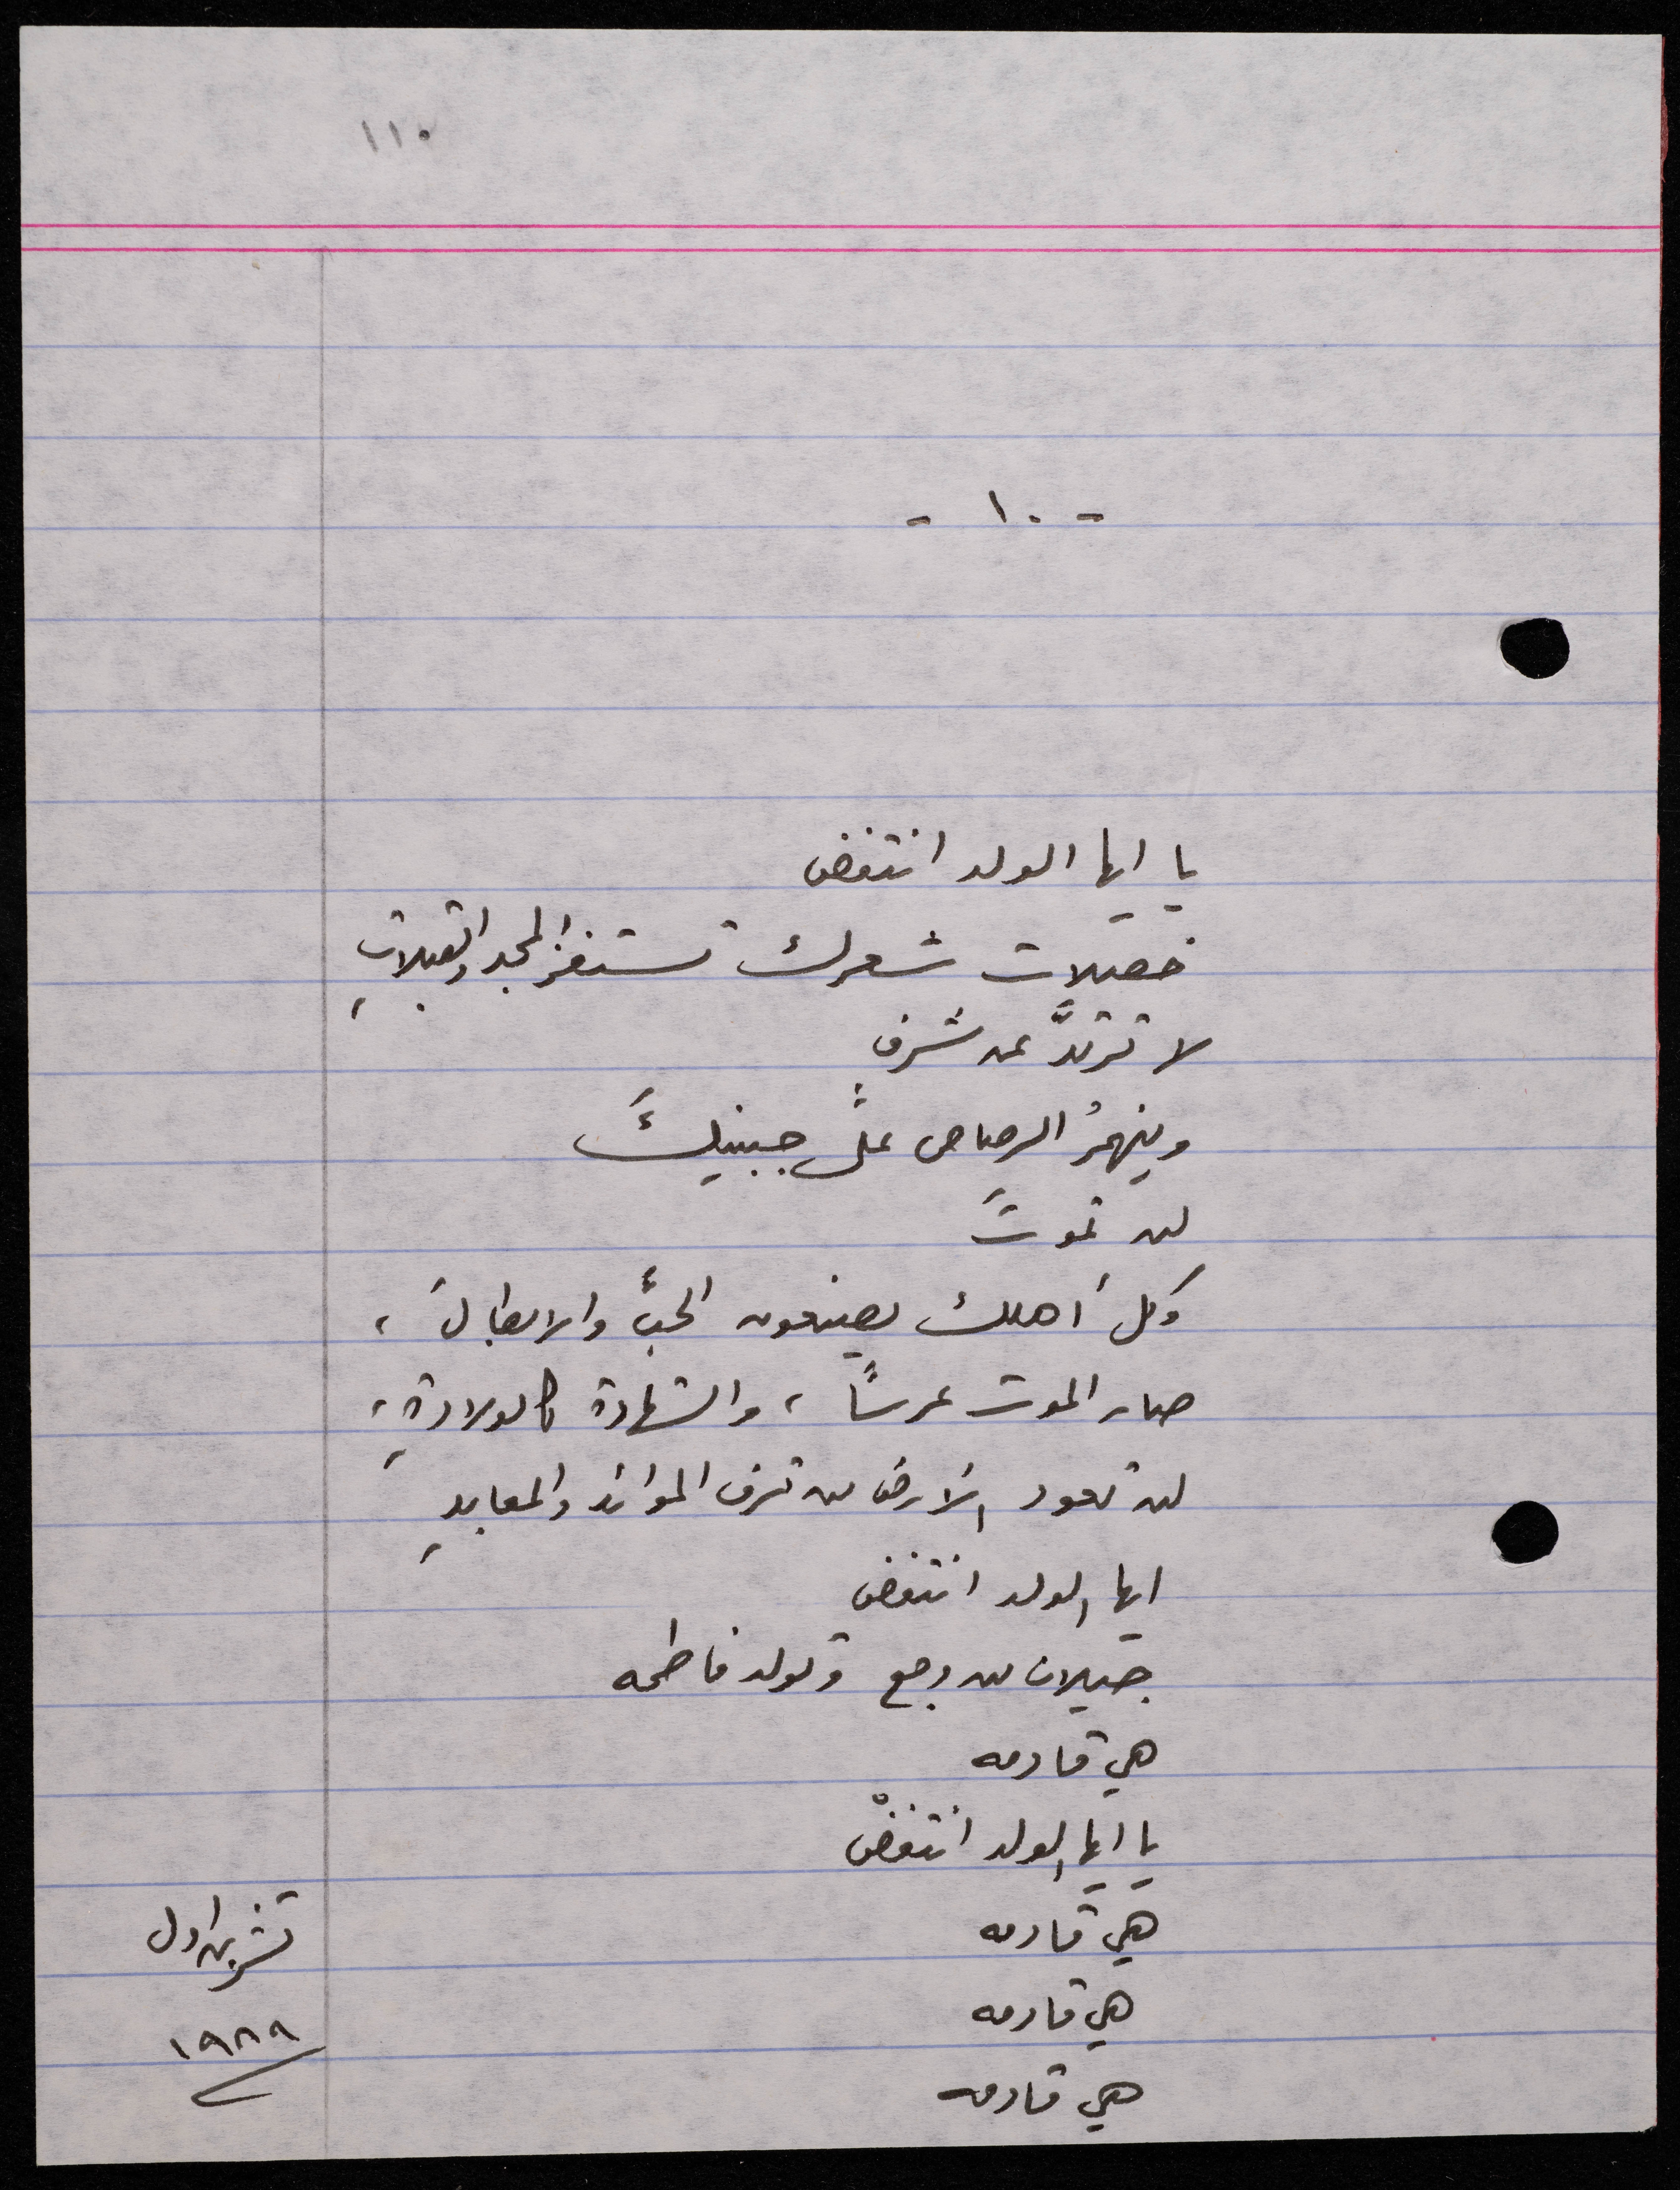 ١١٠
- ١٠ -
يا ايها الولد انتفض
خصيلات شعرك تستفز المجد والقبلاتِ
لا ترتدَّ عن شرفٍ
وينهمرُ الرصاص على جبينكَ
لن تموتَ
وكل أهلك يصنعون الحبَّ والابطالَ،
صار الموت عرساً، والشهادة كالولادةِ،
لن تعود الأرض من ترف الموائد والمعابدِ
ايها الولد انتفض
جيلان من وجع وتولد فاطمه
هي قادمه
يا ايها الولد انتفضْ
هي قادمه
هي قادمه
هي قادمه
تشرين اول
١٩٨٩